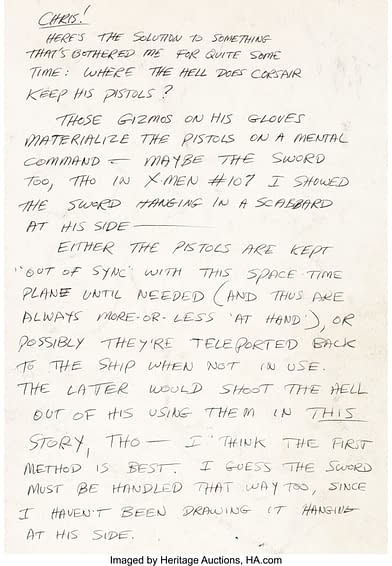 CHRIS!
HERE'S THE SOLUTION TO SOMETHING
THAT'S BOTHERED ME FOR QUITE SOME
TIME: WHERE THE HELL DOES CORSAIR
KEEP HIS PISTOLS?
THOSE GIZMOS ON HIS GLOVES
MATERIALIZE THE PISTOLS ON A MENTAL
COMMAND — MAYBE THE SWORD
TOO, THO IN X-MEN #107 I SHOWED
THE SWORD HANGING IN A SCABBARD
AT HIS SIDE —
EITHER THE PISTOLS ARE KEPT
"OUT OF SYNC" WITH THIS SPACE-TIME
PLANE UNTIL NEEDED (AND THUS ARE
ALWAYS MORE-OR-LESS 'AT HAND'), OR
POSSIBLY THEY'RE TELEPORTED BACK
TO THE SHIP WHEN NOT IN USE.
THE LATTER WOULD SHOOT THE HELL
OUT OF HIS USING THEM IN THIS
STORY, THO — I THINK THE FIRST
METHOD IS BEST. I GUESS THE SWORD
MUST BE HANDLED THAT WAY TOO, SINCE
I HAVEN'T BEEN DRAWING IT HANGING
AT HIS SIDE.
Imaged by Heritage Auctions, HA.com